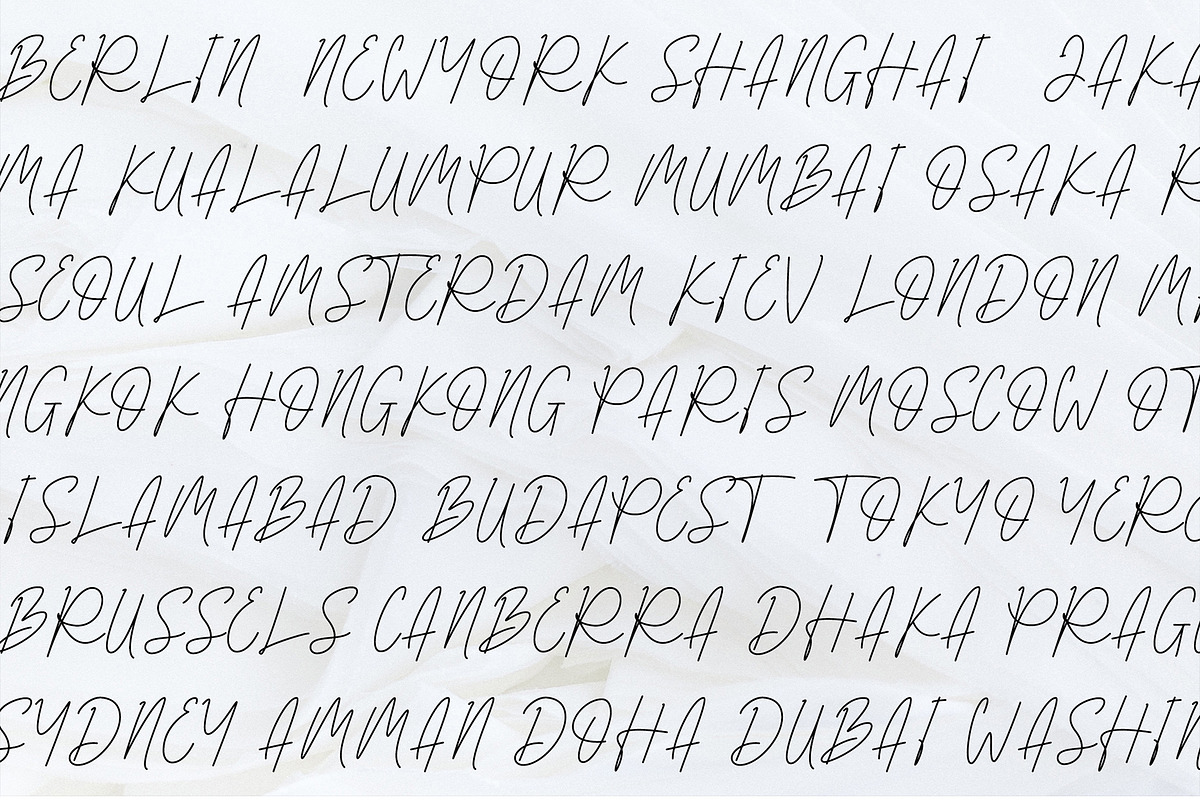 BERLIN NEWYORK SHANGHAI JAKA
MA KUALALUMPUR MUMBAI OSAKA R
SEOUL AMSTERDAM KIEV LONDON M
NGKOK HONGKONG PARIS MOSCOW OT
ISLAMABAD BUDAPEST TOKYO YERE
BRUSSELS CANBERRA DHAKA PRAG
SYDNEY AMMAN DOHA DUBAI WASHIN